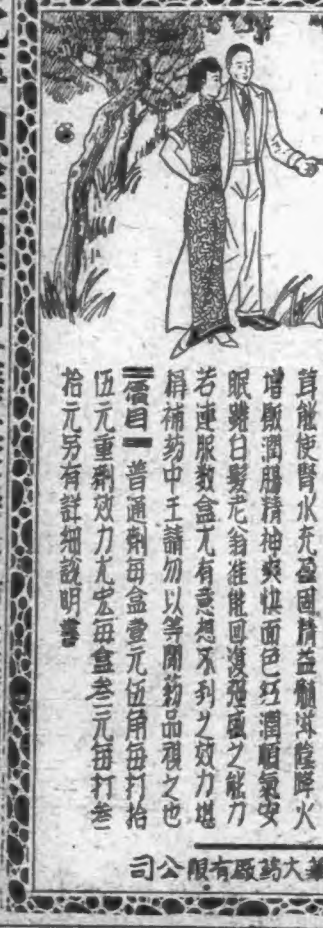 茸能使腎水充盈固精益髓滋陰降火
增飯潤腸精神爽快面色红潤順氣安
眠雖白髮老翁准能回復强盛之能力
若連服数盒尤有意想不到之效力堪
稱補药中王請勿以等閒药品視之也
價目 普通劑每盒壹元伍角每打拾
伍元重劑效力尤宏每盒叁元每打叁
拾元另有詳細說明書
大药厰有限公司